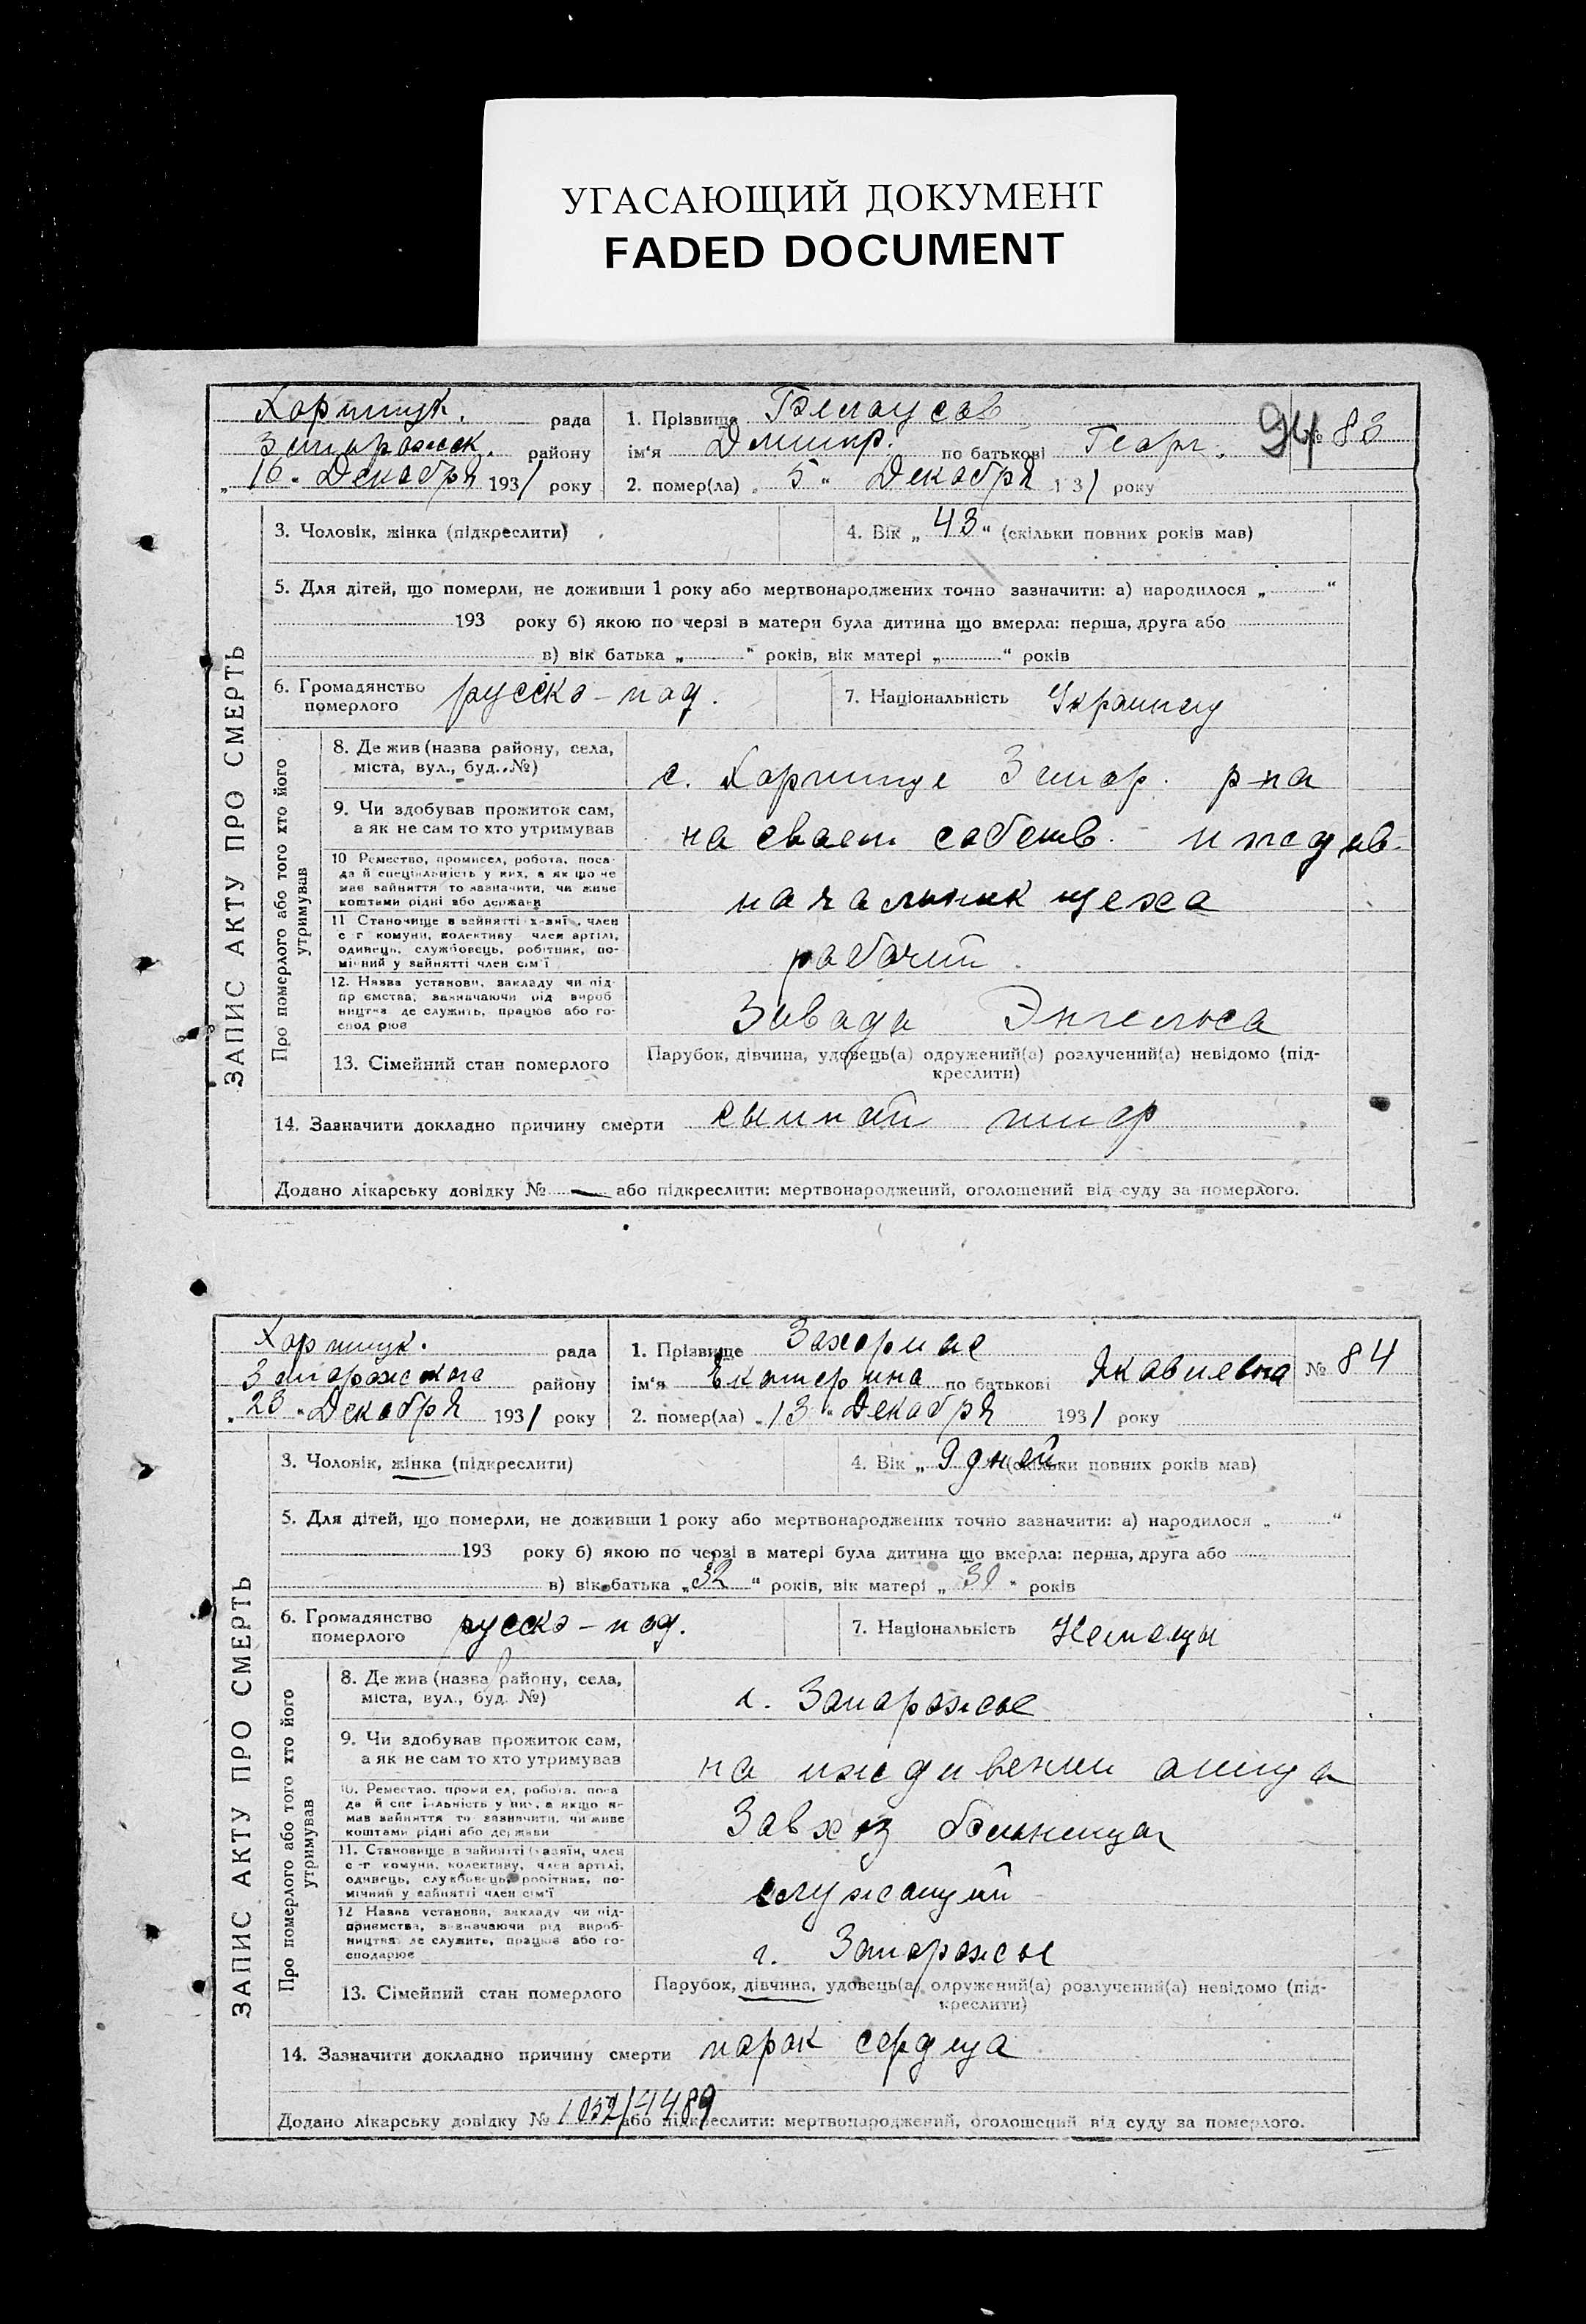 УГАСАЮЩИЙ ДОКУМЕНТ
FADED DOCUMENT
Хортицк. рада
Запорожск. району
„16" Декабря 1931 року
1. Прізвище Белоусов
ім'я Дмитр. по батькові Георг.
94 № 83
2. помер(ла) „5" Декабря 1931 року
3. Чоловік, жінка (підкреслити)
4. Вік „43" (скільки повних років мав)
5. Для дітей, що померли, не доживши 1 року або мертвонароджених точно зазначити: а) народилося „ "
193 року б) якою по черзі в матери була дитина що вмерла: перша, друга або
в) вік батька „ " років, вік матері „ " років
6. Громадянство померлого русско-под.
7. Національність Украинец
ЗАПИС АКТУ ПРО СМЕРТЬ
Про померлого або того хто його утримував
8. Де жив (назва району, села,
міста, вул., буд. №)
с. Хортице Запор. р-на
9. Чи здобував прожиток сам,
а як не сам то хто утримував
на своем собств. иждив.
10 Ремество, промисел, робота, поса-
да й спеціальність у них, а як що не
має зайняття то зазначити, чи живе
коштами рідні або держави
началник цеха
11 Становище в зайнятті хазяїн, член
с г комуни, колективу член артілі,
одинець, службовець, робітник, по-
мічний у зайнятті член сім'ї
рабочий
12. Назва установи, закладу чи під-
приємства, зазначаючи рід вироб
ництва де служить, працює або го-
сподарює
Завода Энгельса
13. Сімейний стан померлого
Парубок, дівчина, удовець(а) одружений(а) розлучений(а) невідомо (під-
креслити)
14. Зазначити докладно причину смерти сыпной тиф
Додано лікарську довідку № — або підкреслити: мертвонароджений, оголошений від суду за померлого.
Хортицк. рада
Запорожского району
„23" Декабря 1931 року
1. Прізвище
ім'я Екатерина по батькові Яковлевна
№ 84
2. помер(ла) „13" Декабря 1931 року
3. Чоловік, жінка (підкреслити)
4. Вік „9 дней (скільки повних років мав)
5. Для дітей, що померли, не доживши 1 року або мертвонароджених точно зазначити: а) народилося „ "
193 року б) якою по черзі в матері була дитина що вмерла: перша, друга або
в) вік батька „32" років, вік матері „ " років
6. Громадянство померлого русско-под.
7. Національність Немецы
ЗАПИС АКТУ ПРО СМЕРТЬ
Про померлого або того хто його утримував
8. Де жив (назва району, села,
міста, вул., буд. №)
г. Запорожье
9. Чи здобував прожиток сам,
а як не сам то хто утримував
на иждивении отца
10. Ремество, промисел, робота, поса
да й спеціальність у них, а якщо не
мав зайняття то зазначити, чи живе
коштами рідні або держави
Завхоз больницы
11. Становище в зайнятті (хазяїн, член
с-г комуни, колективу, член артілі,
одинець, службовець, робітник, по-
мічний у зайнятті член сім'ї
служащий
12 Назва установи, закладу чи під-
приємства, зазначаючи рід вироб-
ництва де служить, працює або го-
сподарює
г. Запорожье
13. Сімейний стан померлого
Парубок, дівчина, удовець(а) одружений(а) розлучений(а) невідомо (під-
креслити)
14. Зазначити докладно причину смерти порок сердца
Додано лікарську довідку № 1052/4489 або підкреслити: мертвонароджений, оголошений від суду за померлого.